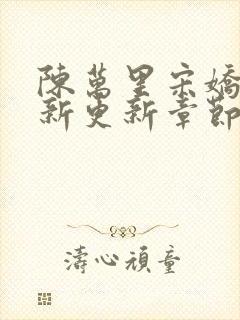 陳萬里宋嬌
新更新章節
濤心頑童